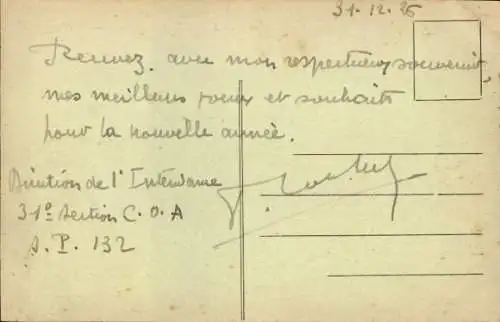 31-12-25
Recevez, avec mon respectueux souvenir,
mes meilleurs voeux et souhaits
pour la nouvelle année.
Direction de l'Intendance
31e Section C.O.A
S.P. 132